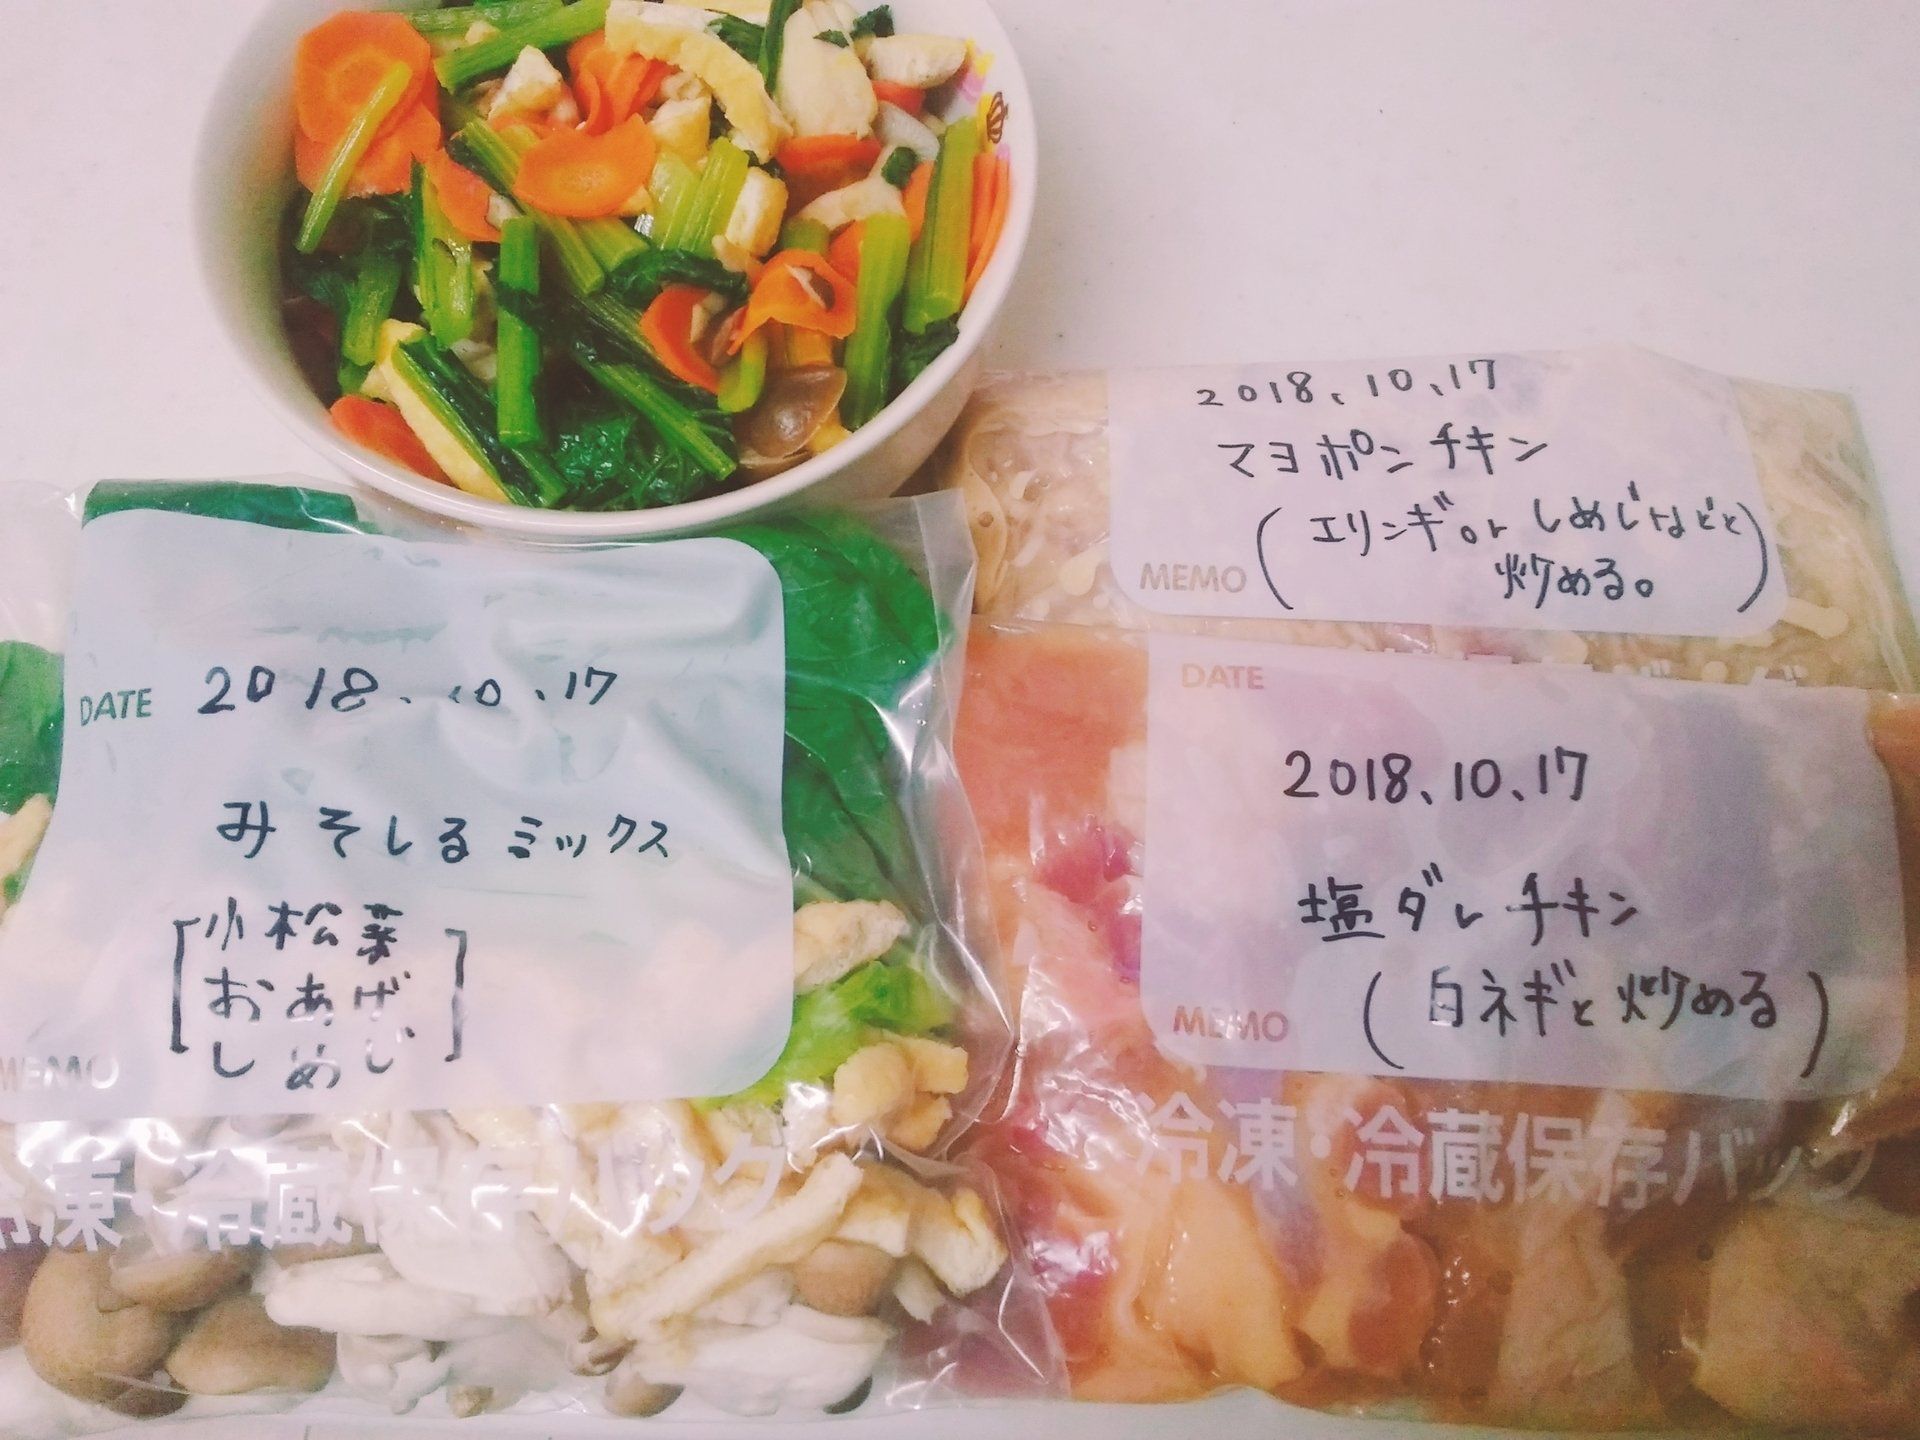 2018、10、17
マヨポンチキン
(エリンギor しめじなどと
炒める。)
MEMO
DATE
2018.10.17
みそしるミックス
[小松菜
おあげ
しめじ]
MEMO
冷凍・冷蔵保存バッグ
DATE
2018、10、17
塩ダレチキン
(白ネギと炒める)
MEMO
冷凍・冷蔵保存バッグ